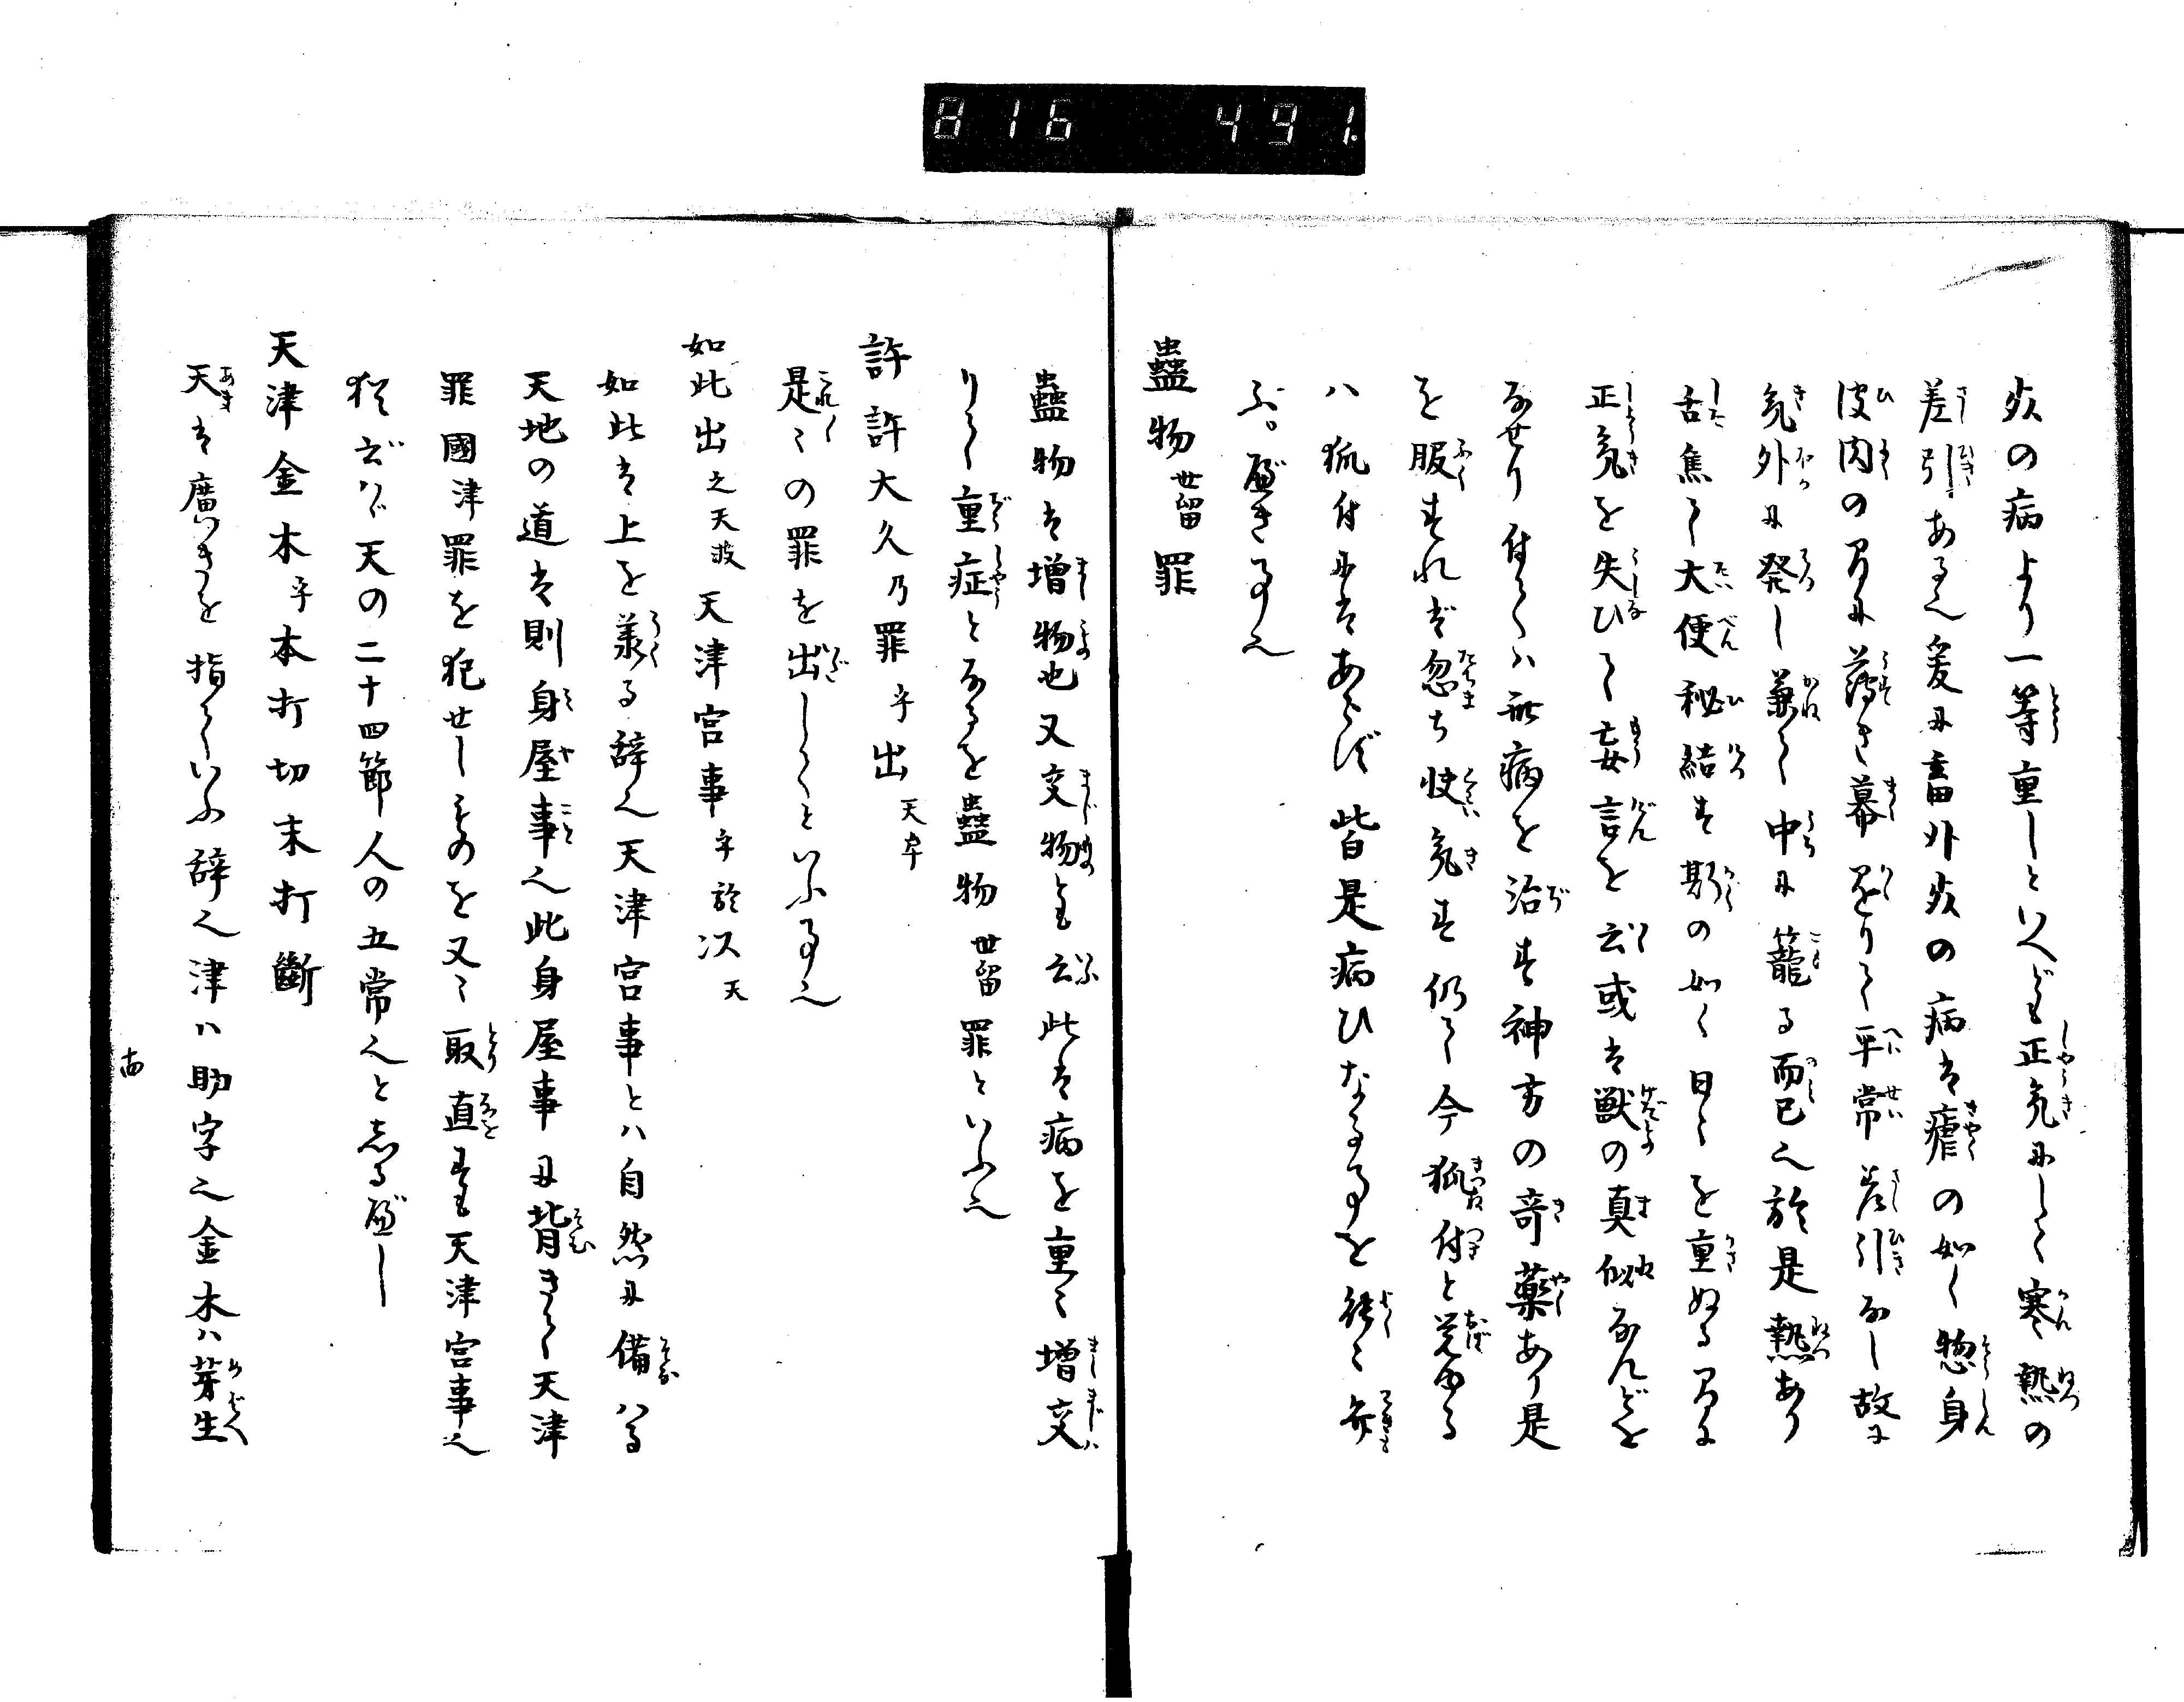 816 491.
炎の病より一等重しといへども正気にして寒熱の
差引あり爰に畜外炎の病は瘧の如く惣身
皮内の間に薄き幕をりて平常差引なし故に
気外に発し兼て中に籠る而已也於是熱あり
舌焦て大便秘結す斯の如く日々を重ぬる間に
正気を失ひて妄言を云或は獣の真似なんどを
なせり付ては此病を治す神方の奇薬あり是
を服すれば忽ち快気す仍て今狐付と覚ゆる
ハ狐付にはあらず皆是病ひなる事を能々弁
ふべき事也
蠱物世留罪
蠱物は増物也又交物とも云此は病を重く増交
りて重症となるを蠱物世留罪といふ也
許許太久乃罪乎出天牟
是々の罪を出してといふ事也
如此出之天波天津宮事乎於次天
如此は上を承る辞也天津宮事とハ自然に備ハる
天地の道は則身屋事也此身屋事に背きて天津
罪國津罪を犯せしものを又々取直すも天津宮事也
猶云バ天の二十四節人の五常也と志るべし
天津金木乎本打切末打斷
天は廣きを指ていふ辞也津ハ助字也金木ハ芽生